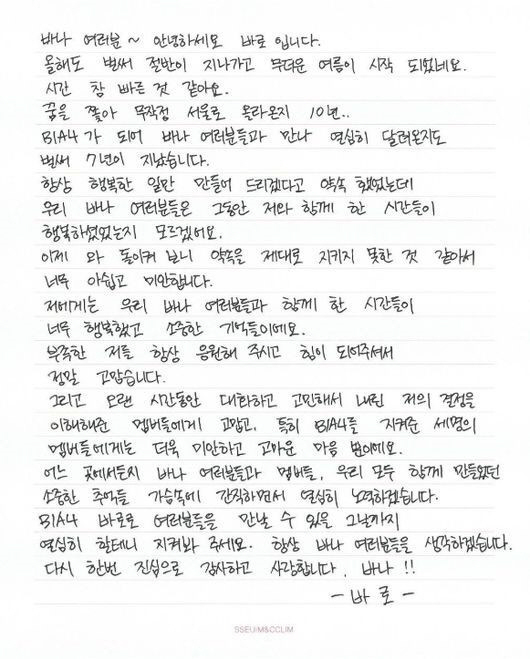 바나 여러분 ~ 안녕하세요 바로 입니다.
올해도 벌써 절반이 지나가고 무더운 여름이 시작 되었네요.
시간 참 빠른 것 같아요.
꿈을 쫓아 무작정 서울로 올라온지 10년..
B1A4가 되어 바나 여러분들과 만나 열심히 달려온지도
벌써 7년이 지났습니다.
항상 행복한 일만 만들어 드리겠다고 약속 했었는데
우리 바나 여러분들은 그동안 저와 함께 한 시간들이
행복하셨었는지 모르겠어요.
이제 와 돌이켜 보니 약속을 제대로 지키지 못한 것 같아서
너무 아쉽고 미안합니다.
저에게는 우리 바나 여러분들과 함께 한 시간들이
너무 행복했고 소중한 기억들이에요.
부족한 저를 항상 응원해 주시고 힘이 되어주셔서
정말 고맙습니다.
그리고 오랜 시간동안 대화하고 고민해서 내린 저의 결정을
이해해준 멤버들에게 고맙고, 특히 B1A4를 지켜준 세명의
멤버들에게는 더욱 미안하고 고마운 마음 뿐이에요.
어느 곳에서든지 바나 여러분들과 멤버들, 우리 모두 함께 만들었던
소중한 추억들 가슴속에 간직하면서 열심히 노력하겠습니다.
B1A4 바로로 여러분들을 만날 수 있을 그날까지
열심히 할테니 지켜봐 주세요. 항상 바나 여러분들을 생각하겠습니다.
다시 한번 진심으로 감사하고 사랑합니다, 바나 !!
- 바로 -
SSEUIM&CCLIM